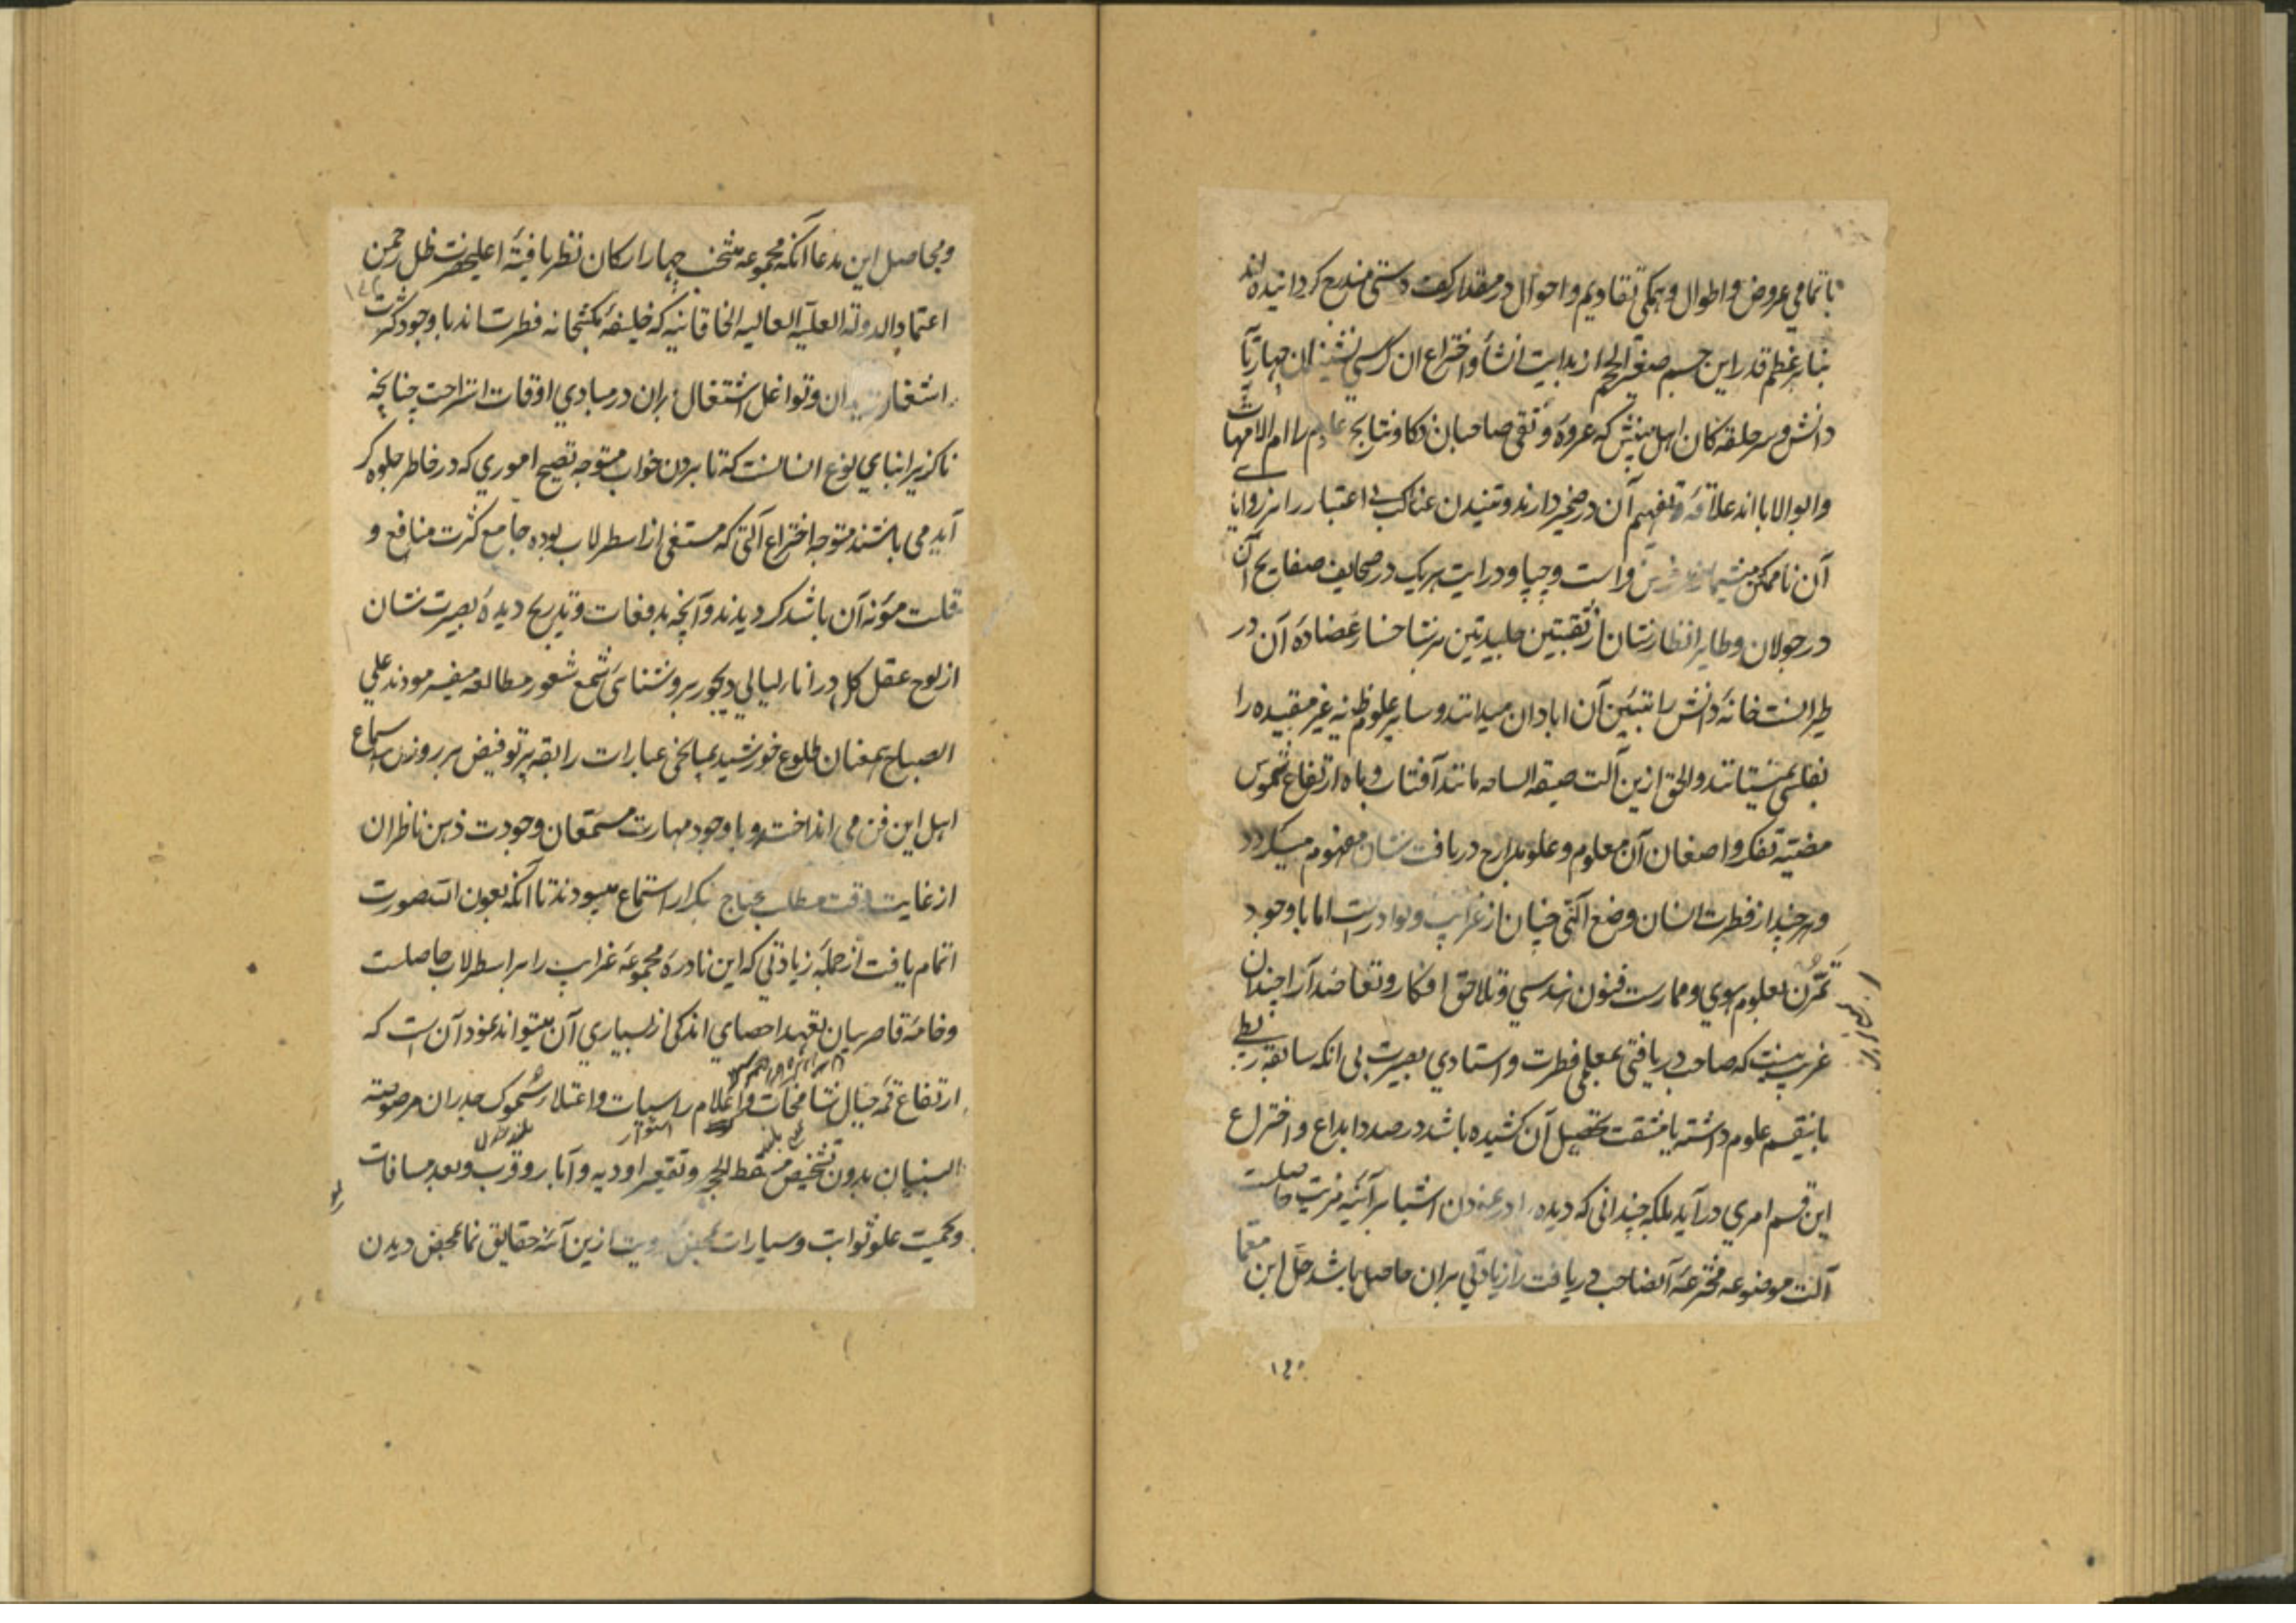 با تمامی عروض و اطوال و همکی تقاویم و احوال در مقدار کف دستی مندرج کردانیده اند
بنابر عظم قدر این جسم صغیر الحجم از بدایت انشأ و اختراع ان کرسی نشینان چهار
دانش و سر حلقه کان اهل بینش که عروهٔ وثقی صاحبان ذکا و نتایج علوم را ام الامهات
و ابو الابا اند علاقهٔ تفهیم آن در ضمیر دارند و تنیدن عناکب اعتبار را بر زوایا
آن ناممکن میشمارند فرس و است و چپا و درایت هریک در صحایف صفایح آن
در جولان و طایر انظارشان از ثقبتین هر شاخسار عضادهٔ آن در
طیرانست خانهٔ دانش را آن ابادان میدانند و سایر علوم ظنیه غیر مقیده را
بفلسی نمیستانند و الحق ازین آلت مانند آفتاب و ماه ارتفاع شموس
مضیئه تفکر و امعان آن معلوم و علو مدارج دریافت شان مفهوم میکردد
و هر چند از فطرت انسان وضع آلتی چنان از غرایب و نوادرست اما با وجود
تمرن بعلوم سوی و ممارست فنون هندسی و تلاحق افکار و تعاضد آرا چندان
غریب نیست که صاحب دریافتی بمعلمی فطرت و استادی بصیرت بی انکه سابقه ربطی
باینقسم علوم داشته یا مشقت تحصیل آن کشیده باشد در صدد ابداع و اختراع
این قسم امری در آید بلکه چندانی که دیده را در نمودن اشیا بر آئینه مزیت حاصلست
آلت موضوعه مخترعهٔ آنصاحب دریافت را زیادتی بر ان حاصل باشد حل این معما
و محاصل این مدعا آنکه مجموعه منتخب چهار ارکان نظر یافتهٔ اعلیحضرت ظل رحمن
اعتماد الدولة العلیة العالیه الخاقانیه که خلیفهٔ فطرت اند با وجود کثرت
اشغال و توا غل اشتغال بران در مبادی اوقات استراحت چنانچه
ناکزیر ابنای نوع انسانست که تا بردن خواب متوجه تصحیح اموری که در خاطر جلوه کر
آید می باشند متوجه اختراع آلتی که مستغنی از اسطرلاب بوده جامع کثرت منافع و
قلت مؤنه آن باشد کردیدند و آنچه بدفعات و تدریج دیدهٔ بصیرت شان
از لوح عقل کل در اناء لیالی دیجور بروشنائی شمع شعور مطالعه میفرمودند علی
الصباح همعنان طلوع خورشید عبارات رایقه پرتو فیض بر روزن استماع
اهل این فن می انداختند و با وجود مهارت مستمعان وجودت ذهن ناظران
از غایت دقت مطلب محتاج بتکرار استماع میبودند تا آنکه بعون الله صورت
اتمام یافت از جملهٔ زیادتی که این نادرهٔ مجموعهٔ غرایب را بر اسطرلاب حاصلست
و خامهٔ قاصر بیان بتعهد احصای اندکی از بسیاری آن میتواند نمود آن است که
ارتفاع قمهٔ جبال شامخات و اعلام راسیات و اعتلاء سموک جدران مرصوصة
البنیان بدون تشخیص مسقط الحجر و تقعیر اودیه و آبار و قرب و بعد مسافات
و کمیت علو ثوابت و سیارات بمحض رویت ازین آئنهٔ حقایق نما بمحض دیدن